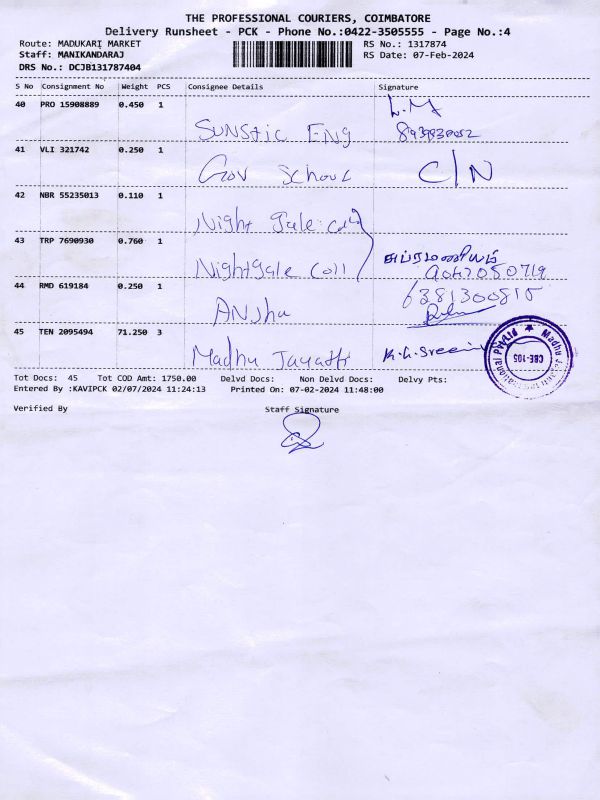 THE PROFESSIONAL COURIERS, COIMBATORE
Delivery Runsheet - PCK - Phone No.:0422-3505555 - Page No.:4
Route: MADUKARI MARKET RS No.: 1317874
Staff: MANIKANDARAJ RS Date: 07-Feb-2024
DRS No.: DCJB131787404
S No Consignment No Weight PCS Consignee Details Signature
40 PRO 15908889 0.450 1
SUNStic ENg
41 VLI 321742 0.250 1
Gov School C/N
42 NBR 55235013 0.110 1
Night gale
43 TRP 7690930 0.760 1
Nightgale Coll சுப்ரமணியம்
44 RMD 619184 0.250 1 6381300815
Ansha
45 TEN 2095494 71.250 3
Madhu Jayanthi K.G.Sreeni
Madhu CBE-105 Pvt Ltd
Tot Docs: 45 Tot COD Amt: 1750.00 Delvd Docs: Non Delvd Docs: Delvy Pts:
Entered By :KAVIPCK 02/07/2024 11:24:13 Printed On: 07-02-2024 11:48:00
Verified By Staff Signature